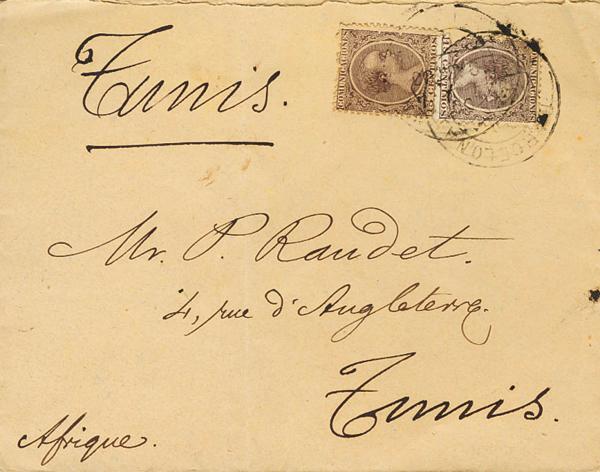 Tunis.
COMUNICACIONES
COMUNICACIONES
Mr. P. Raudet.
4, rue d'Angleterre.
Tunis.
Afrique.